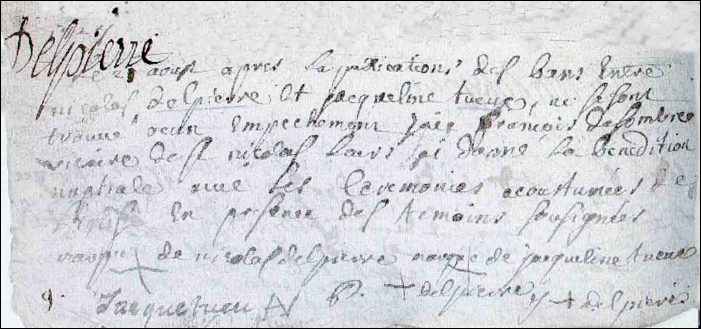 Delpierre
aoust apres la publications des bans entre
nicolas delpierre et jacqueline tueux, ne sesont
trouve aucun empechement jaÿ françois
vicaire de st nicolas leurs ai donné la benedition
nuptiale avec les ceremonies acoustumées de
en presence des temoins sousignées
marque de nicolas delpierre marque de jacqueline tueux
Jacque tueu P. delpierre delpierre